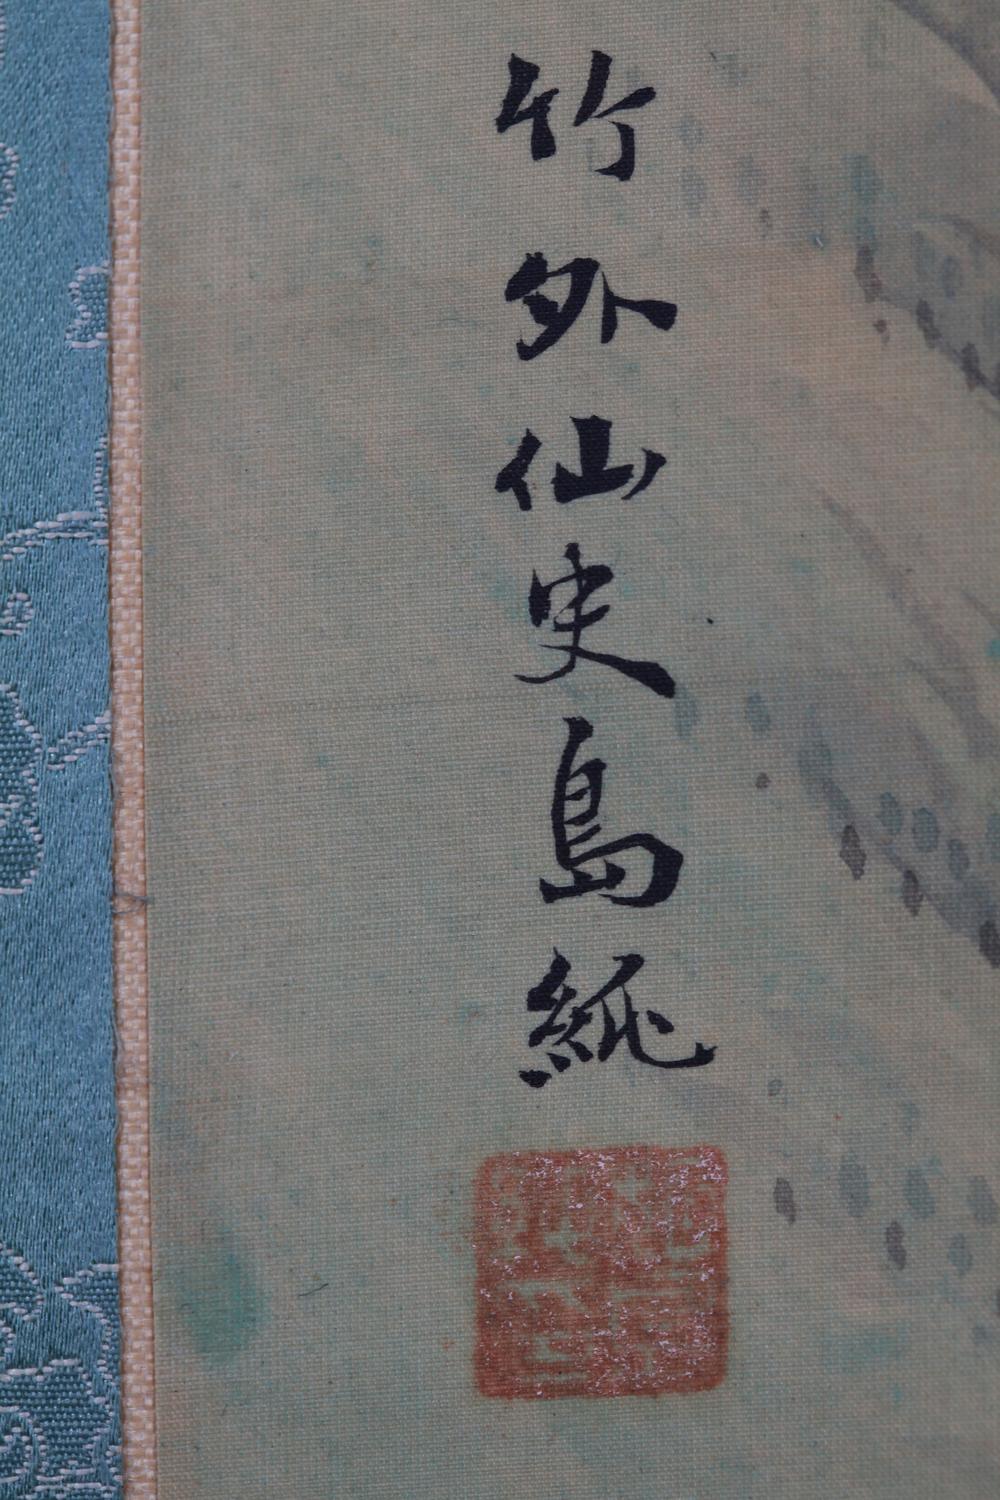 竹外仙史島純